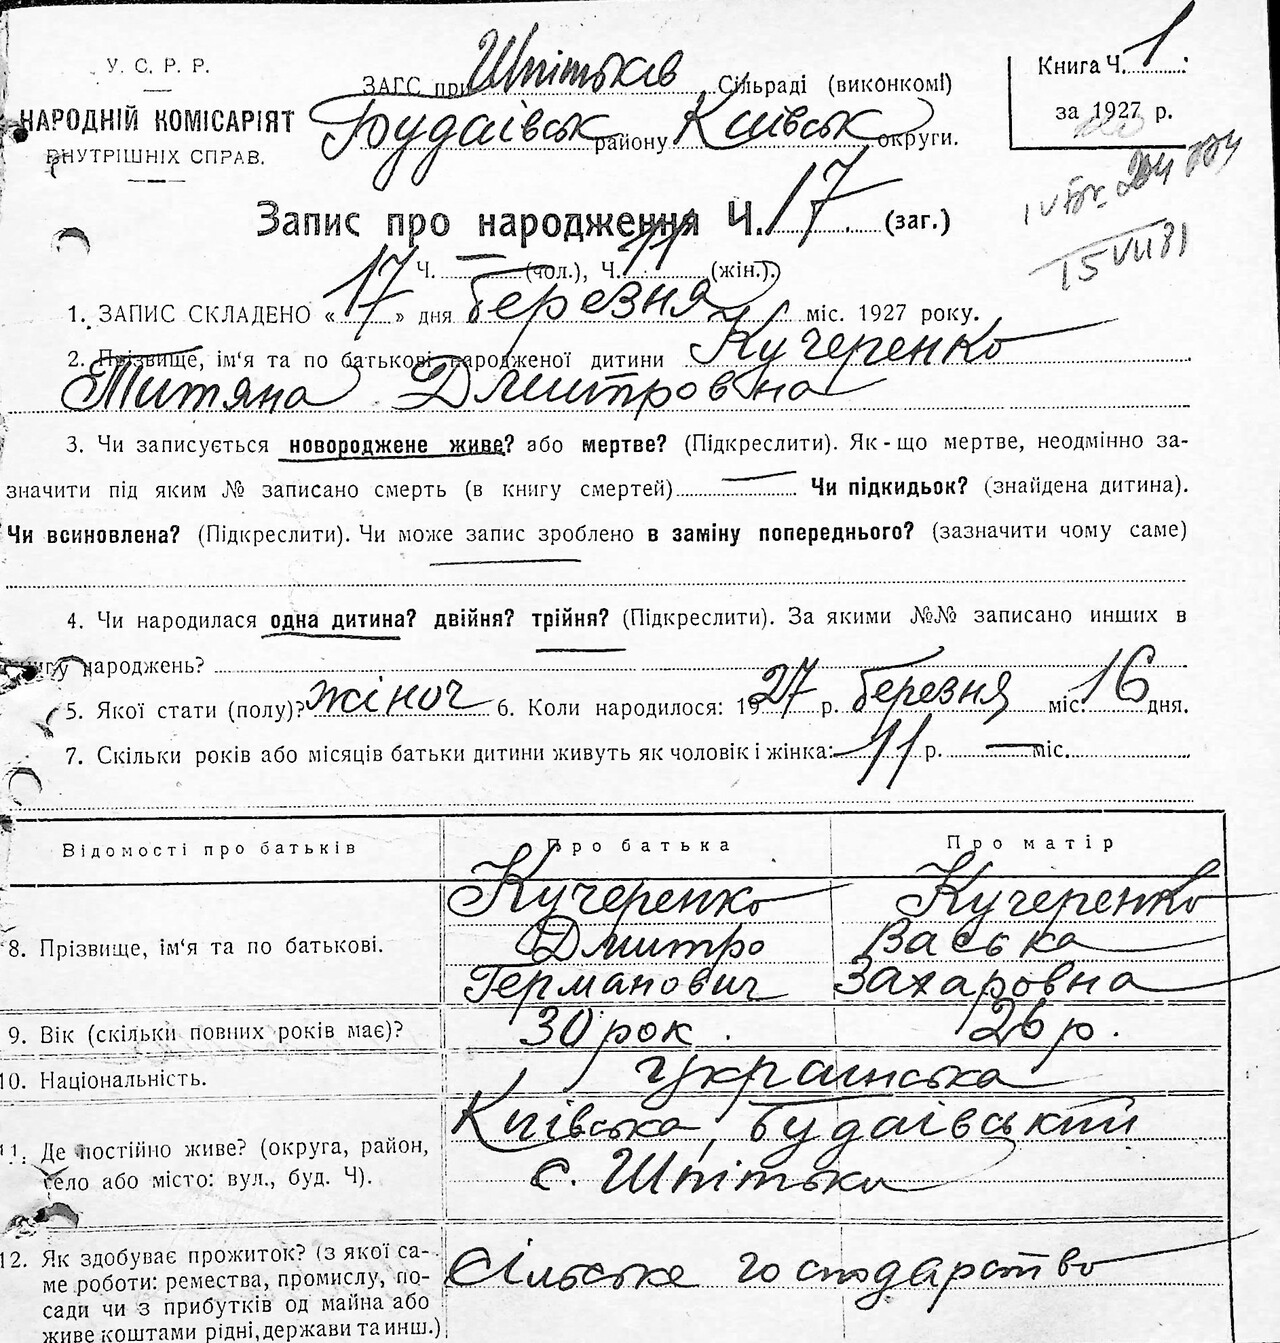 У. С. Р. Р.
НАРОДНІЙ КОМІСАРІЯТ
ВНУТРІШНІХ СПРАВ.
ЗАГС при Шпітьків Сільраді (виконкомі)
Будаівськ району Київськ округи.
Книга Ч. 1
за 1927 р.
15 VII 81
Запис про народження Ч. 17 (заг.)
Ч. — (чол.), Ч. 11 (жін.).
1. ЗАПИС СКЛАДЕНО « 17 » дня березня міс. 1927 року.
2. Прізвище, ім'я та по батькові народженої дитини Кучеренко
Титяна Дмитровна
3. Чи записується новороджене живе? або мертве? (Підкреслити). Як-що мертве, неодмінно за-
значити під яким № записано смерть (в книгу смертей) — Чи підкидьок? (знайдена дитина).
Чи всиновлена? (Підкреслити). Чи може запис зроблено в заміну попереднього? (зазначити чому саме)
4. Чи народилася одна дитина? двійня? трійня? (Підкреслити). За якими №№ записано инших в
книгу народжень?
5. Якої стати (полу)? жіноч 6. Коли народилося: 1927 р. березня міс. 16 дня.
7. Скільки років або місяців батьки дитини живуть як чоловік і жінка: 11 р. — міс.
Відомості про батьків Про батька Про матір
8. Прізвище, ім'я та по батькові.
Кучеренко Кучеренко
Дмитро Васька
Германович Захаровна
9. Вік (скільки повних років має)? 30 рок. 26 р.
10. Національність. Українська
11. Де постійно живе? (округа, район,
село або місто: вул., буд. Ч).
Київська, Будаівський
с. Шпітьки
12. Як здобуває прожиток? (з якої са-
ме роботи: ремества, промислу, по-
сади чи з прибутків од майна або
живе коштами рідні, держави та инш.)
Сільське господарство